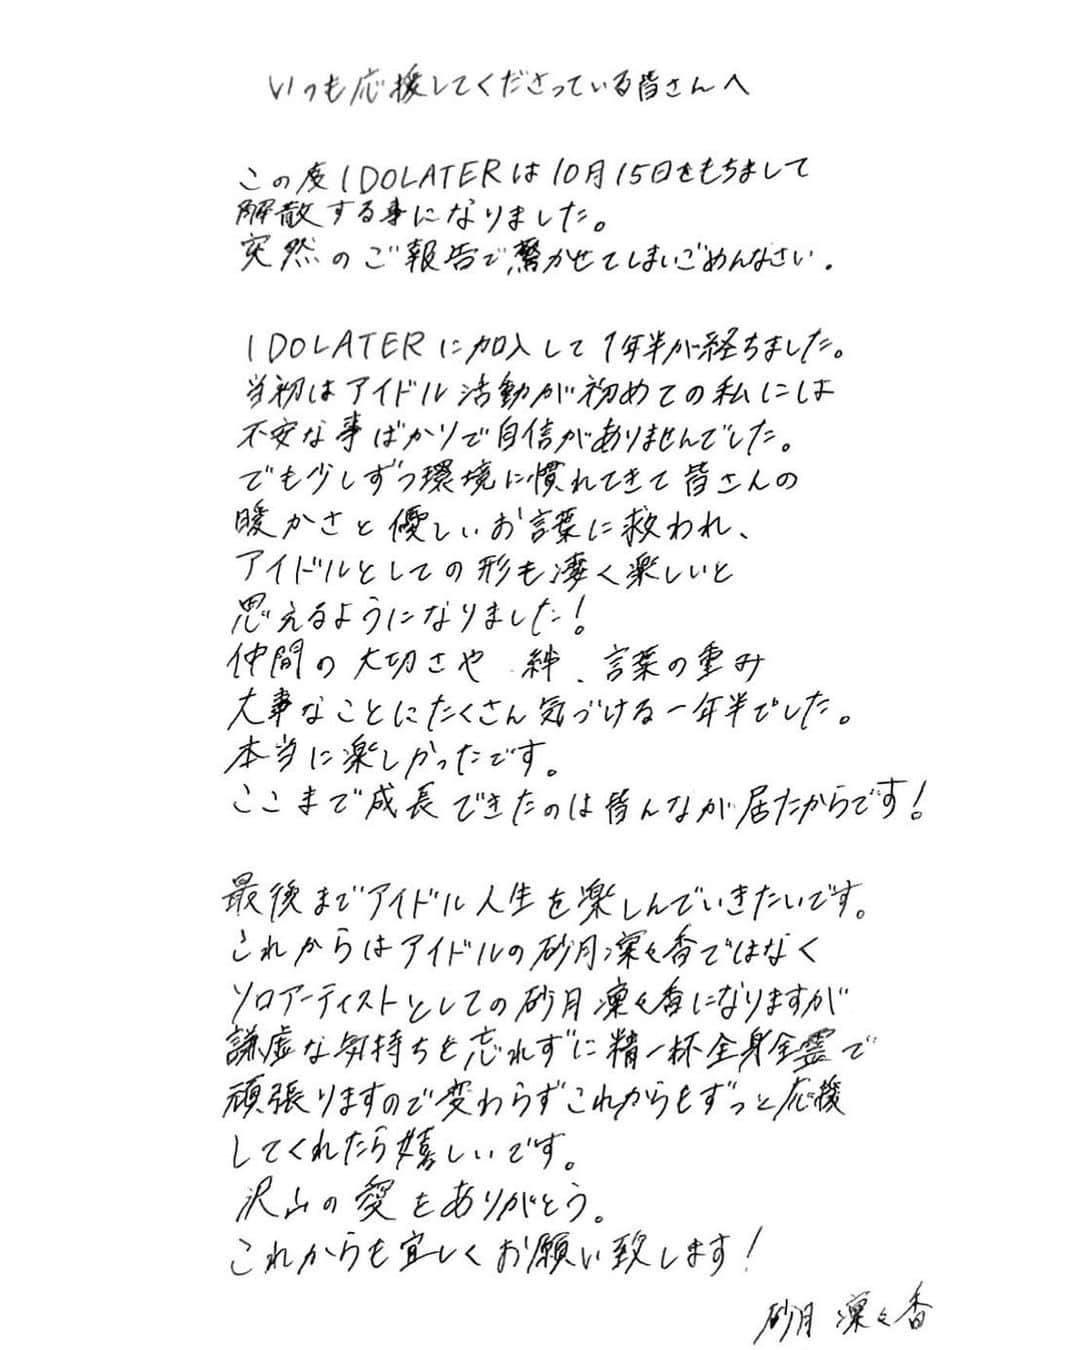 いつも応援してくださっている皆さんへ
この度IDOLATERは10月15日をもちまして
解散する事になりました。
突然のご報告で驚かせてしまいごめんなさい.
IDOLATERに加入して1年半が経ちました。
当初はアイドル活動が初めての私には
不安な事ばかりで自信がありませんでした。
でも少しずつ環境に慣れてきて皆さんの
暖かさと優しいお言葉に救われ、
アイドルとしての形も凄く楽しいと
思えるようになりました!
仲間の大切さや、絆、言葉の重み
大事なことにたくさん気づける一年半でした。
本当に楽しかったです。
ここまで成長できたのは皆んなが居たからです!
最後までアイドル人生を楽しんでいきたいです。
これからはアイドルの砂月凜々香ではなく
ソロアーティストとしての砂月凜々香になりますが
謙虚な気持ちを忘れずに精一杯全身全霊で
頑張りますので変わらずこれからもずっと応援
してくれたら嬉しいです。
沢山の愛をありがとう。
これからも宜しくお願い致します!
砂月 凜々香